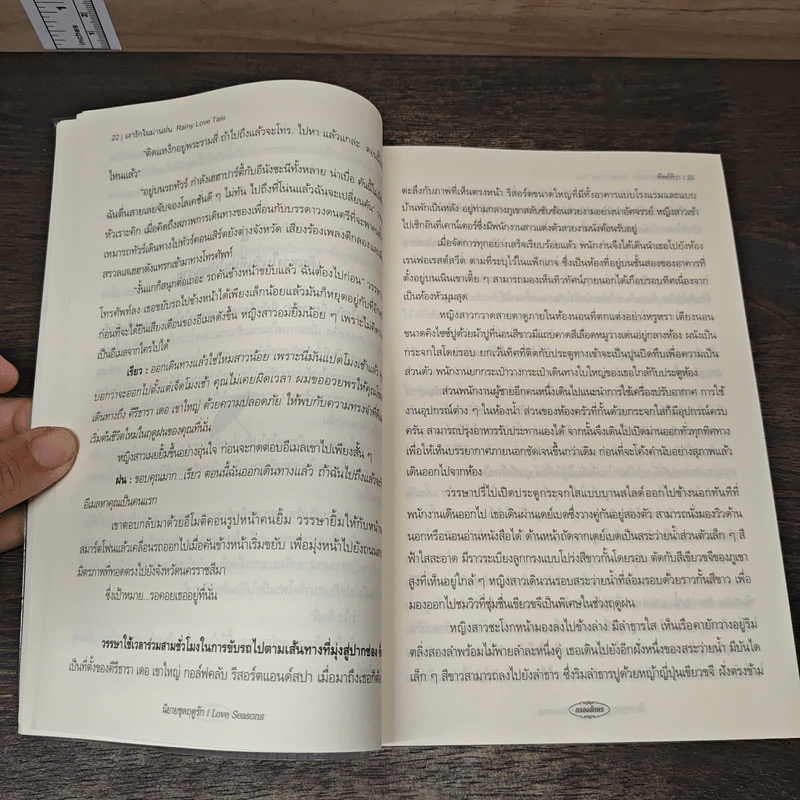 1
2
inches
22 | เงารักในม่านฝน Rainy Love Tale
"ติดแหง็กอยู่พระรามสี่ ถ้าไปถึงแล้วจะโทร. ไปหา แล้วแกล่ะ ตอนนี้
ไหนแล้ว"
"อยู่บนรถทัวร์ กำลังเฮฮาปาร์ตี้กับอีนังชะนีทั้งหลาย น่าเบื่อ คันนี้
ฉันตื่นสายเลยจับจองโลเคชั่นดี ๆ ไม่ทัน ไปถึงที่โน่นแล้วฉันจะเปลี่ยนคัน"
หัวเราะคิก เมื่อคิดถึงสภาพการเดินทางของเพื่อนกับบรรดาวงดนตรีที่จะพา
เหมารถทัวร์เดินทางไปทัวร์คอนเสิร์ตยังต่างจังหวัด เสียงร้องเพลงตีกลอง
สรวลเสเฮฮาดังแทรกเข้ามาทางโทรศัพท์
"งั้นแกก็สนุกต่อเถอะ รถคันข้างหน้าขยับแล้ว ฉันต้องไปก่อน" วรรษา
โทรศัพท์ลง เธอขยับรถไปข้างหน้าได้เพียงเล็กน้อยแล้วมันก็หยุดอยู่กับที่อีก
ก่อนที่จะได้ยินเสียงเตือนของอีเมลดังขึ้น หญิงสาวอมยิ้มน้อย ๆ เพราะไม่คิดว่า
เป็นอีเมลจากใครไปได้
เรียว : ออกเดินทางแล้วใช่ไหมสาวน้อย เพราะนี่มันแปดโมงเช้าแล้ว
บอกว่าจะออกไปตั้งแต่เจ็ดโมงเช้า คุณไม่เคยผิดเวลา ผมขออวยพรให้คุณ
เดินทางถึง คีรีธารา เดอ เขาใหญ่ ด้วยความปลอดภัย ให้พบกับความทรงจำที่ดี
เริ่มต้นชีวิตใหม่ในฤดูฝนของคุณที่นั่น
หญิงสาวเผยยิ้มขึ้นอย่างอุ่นใจ ก่อนจะกดตอบอีเมลเขาไปเพียงสั้น ๆ
ฝน : ขอบคุณมาก...เรียว ตอนนี้ฉันออกเดินทางแล้ว ถ้าฉันไปถึงแล้วจะ
อีเมลหาคุณเป็นคนแรก
เขาตอบกลับมาด้วยอีโมติคอนรูปหน้าคนยิ้ม วรรษายิ้มให้กับหน้า
สมาร์ตโฟนแล้วเคลื่อนรถออกไปเมื่อคันข้างหน้าเริ่มขยับ เพื่อมุ่งหน้าไปยังถนน
มิตรภาพที่ทอดตรงไปยังจังหวัดนครราชสีมา
ซึ่งเป้าหมาย...รอคอยเธออยู่ที่นั่น
วรรษาใช้เวลาร่วมสามชั่วโมงในการขับรถไปตามเส้นทางที่มุ่งสู่ปากช่อง
เป็นที่ตั้งของคีรีธารา เดอ เขาใหญ่ กอล์ฟคลับ รีสอร์ตแอนด์สปา เมื่อมาถึงเธอก็ต้อง
นิยายชุดฤดูรัก | Love Seasons
ทิพย์ทิวา | 23
ตะลึงกับภาพที่เห็นตรงหน้า รีสอร์ตขนาดใหญ่ที่มีทั้งอาคารแบบโรงแรมและแบบ
บ้านพักเป็นหลัง อยู่ท่ามกลางภูเขาสลับซับซ้อนสวยงามอย่างน่าอัศจรรย์ หญิงสาวเข้า
ไปเช็กอินที่เคาน์เตอร์ซึ่งมีพนักงานสาวแต่งตัวสวยงามนั่งต้อนรับอยู่
เมื่อจัดการทุกอย่างเสร็จเรียบร้อยแล้ว พนักงานจึงได้เดินนำเธอไปยังห้อง
เรนฟอเรสต์สวีต ตามที่ระบุไว้ในแพ็กเกจ ซึ่งเป็นห้องที่อยู่บนชั้นสองของอาคารที่
ตั้งอยู่บนเนินเขาเตี้ย ๆ สามารถมองเห็นทิวทัศน์ภายนอกได้เกือบรอบทิศเนื่องจาก
เป็นห้องหัวมุมสุด
หญิงสาวกวาดสายตาดูภายในห้องนอนที่ตกแต่งอย่างหรูหรา เตียงนอน
ขนาดคิงไซซ์ปูด้วยผ้าปูที่นอนสีขาวมีแถบคาดสีเลือดหมูวางเด่นอยู่กลางห้อง ผนังเป็น
กระจกใสโดยรอบ ยกเว้นทิศที่ติดกับประตูทางเข้าจะเป็นปูนปิดทึบเพื่อความเป็น
ส่วนตัว พนักงานยกกระเป๋าวางกระเป๋าเดินทางใบใหญ่ของเธอใกล้กับประตูห้อง
ส่วนพนักงานผู้ชายอีกคนหนึ่งเดินไปแนะนำการใช้เครื่องปรับอากาศ การใช้
งานอุปกรณ์ต่าง ๆ ในห้องน้ำ ส่วนของห้องครัวที่กั้นด้วยกระจกใสก็มีอุปกรณ์ครบ
ครัน สามารถปรุงอาหารรับประทานเองได้ จากนั้นจึงเดินไปเปิดม่านออกทั่วทุกทิศทาง
เพื่อให้เห็นบรรยากาศภายนอกชัดเจนขึ้นกว่าเดิม ก่อนที่จะโค้งคำนับอย่างสุภาพแล้ว
เดินออกไปจากห้อง
วรรษาปรี่ไปเปิดประตูกระจกใสแบบบานสไลด์ออกไปข้างนอกทันทีที่
พนักงานเดินออกไป เธอเดินผ่านเดย์เบดซึ่งวางคู่กันอยู่สองตัว สามารถนั่งมองวิวด้าน
นอกหรือนอนอ่านหนังสือได้ ด้านหน้าถัดจากเดย์เบดเป็นสระว่ายน้ำส่วนตัวเล็ก ๆ สี
ฟ้าใสสะอาด มีราวระเบียงลูกกรงแบบโปร่งสีขาวกั้นโดยรอบ ตัดกับสีเขียวขจีของภูเขา
สูงที่เห็นอยู่ใกล้ ๆ หญิงสาวเดินวนรอบสระว่ายน้ำที่ล้อมรอบด้วยราวกั้นสีขาว เพื่อ
มองออกไปชมวิวที่ชุ่มชื่นเขียวขจีเป็นพิเศษในช่วงฤดูฝน
หญิงสาวชะโงกหน้ามองลงไปข้างล่าง มีลำธารใส เห็นเรือคายักวางอยู่ริม
ตลิ่งสองลำพร้อมไม้พายลำละหนึ่งคู่ เธอเดินไปยังอีกฝั่งหนึ่งของสระว่ายน้ำ มีบันได
เล็ก ๆ สีขาวสามารถลงไปยังลำธาร ซึ่งริมลำธารปูด้วยหญ้าญี่ปุ่นเขียวขจี ฝั่งตรงข้าม
กรองอักษร